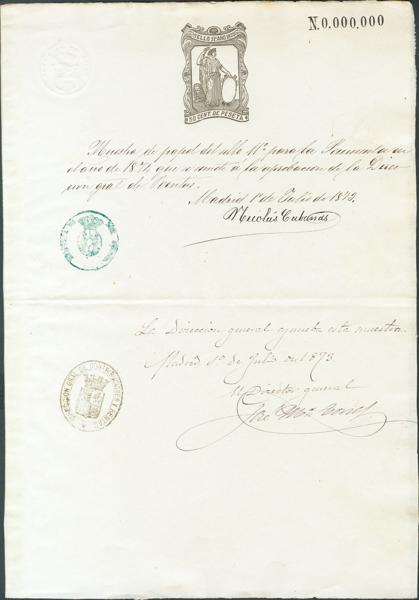 N. 0.000,000
SELLO 11º AÑO 1874
50 CENT. DE PESETA
Muestra de papel del sello 11º para la Península en
el año de 1874, que se remite á la aprobacion de la Direc
cion gral de Rentas.
Madrid 1º de Julio de 1873.
Nicolás Cabañas
La Direccion general aprueba esta muestra
Madrid 1º de Julio de 1873.
El Director general
DIRECCION GRAL DE CONTRIBUCIONES Y RENTAS
José Mª